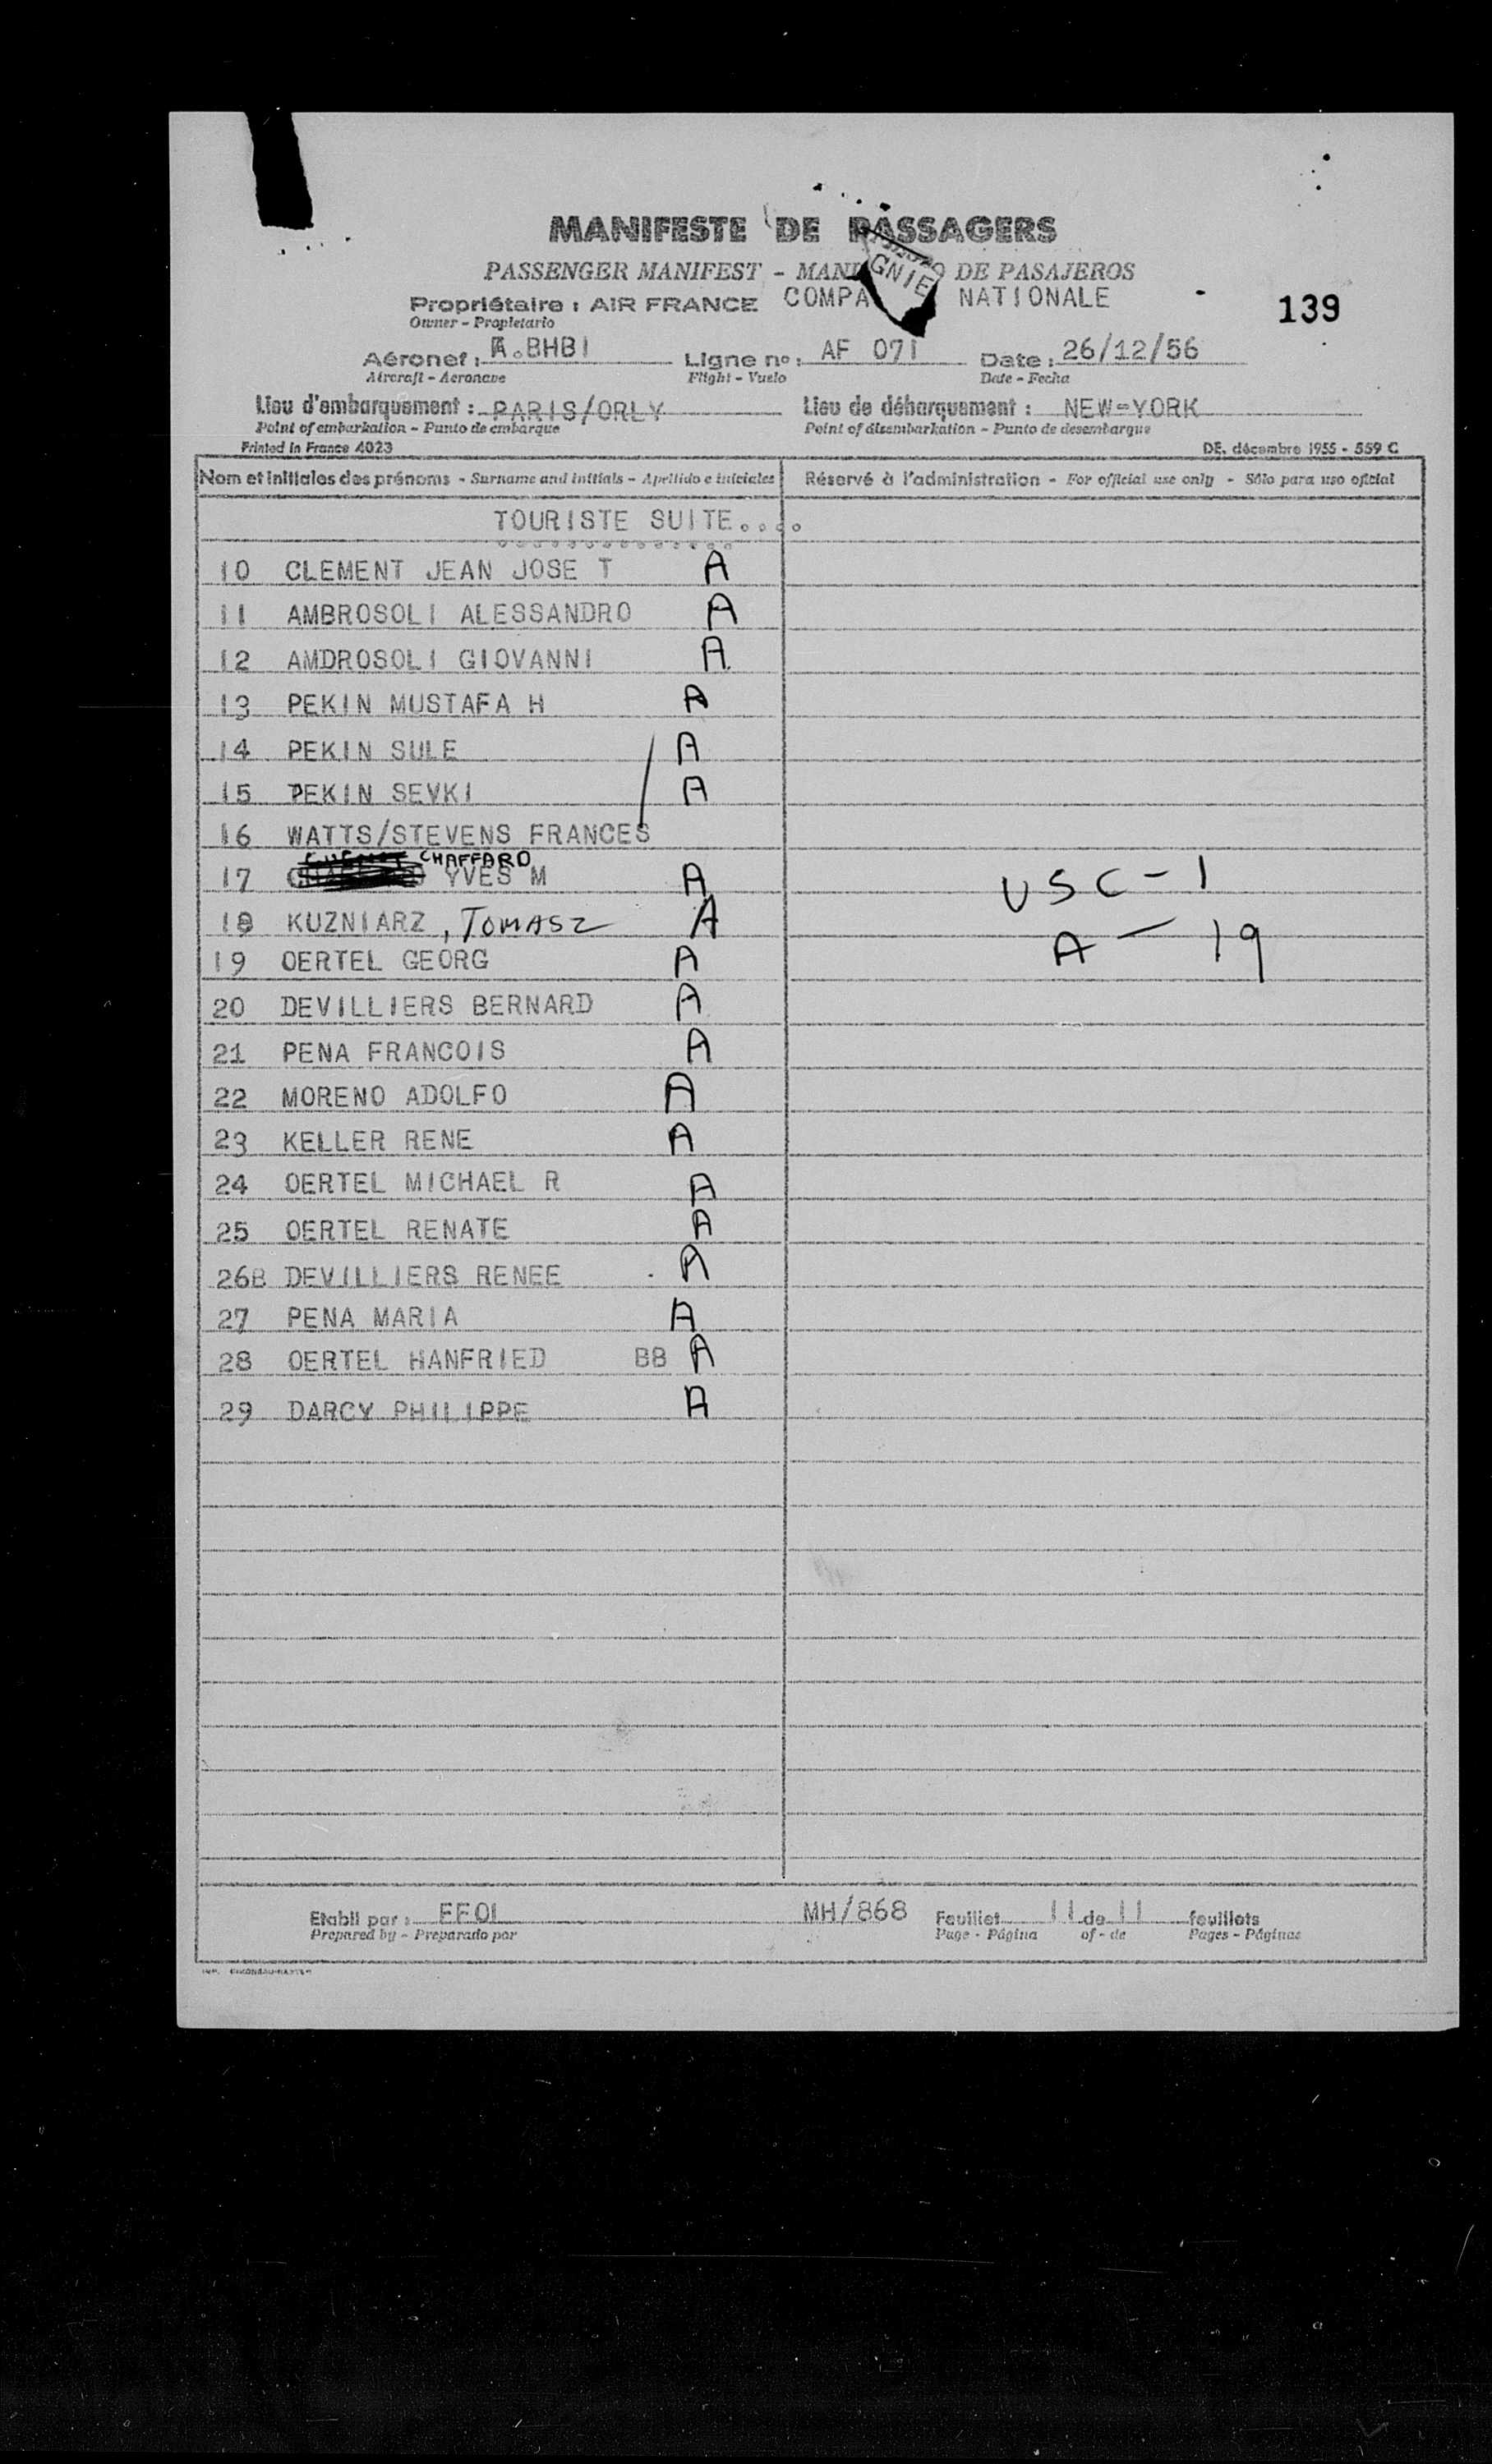 MANIFESTE DE PASSAGERS
PASSENGER MANIFEST - MANI O DE PASAJEROS
GNIE
Propriétaire : AIR FRANCE COMPA NATIONALE
Owner - Propietario
139
Aéronef : .BHBI Ligne no : AF 071 Date : 26/12/56
Aircraft - Aeronave Flight - Vuelo Date - Fecha
Lieu d'embarquement : PARIS/ORLY Lieu de débarquement : NEW-YORK
Point of embarkation - Punto de embarque Point of disembarkation - Punto de desembarque
Printed in France 4023 DE. décembre 1955 - 559 C
Nom et initiales des prénoms - Surname and initials - Apellido e iniciales Réservé à l'administration - For official use only - Sólo para uso oficial
TOURISTE SUITE....
10 CLEMENT JEAN JOSE T A
11 AMBROSOLI ALESSANDRO A
12 AMDROSOLI GIOVANNI A
13 PEKIN MUSTAFA H A
14 PEKIN SULE A
15 PEKIN SEVKI A
16 WATTS/STEVENS FRANCES
CHAFFARD
17 YVES M A USC-1
18 KUZNIARZ, TOMASZ A A - 19
19 OERTEL GEORG A
20 DEVILLIERS BERNARD A
21 PENA FRANCOIS A
22 MORENO ADOLFO A
23 KELLER RENE A
24 OERTEL MICHAEL R A
25 OERTEL RENATE A
26B DEVILLIERS RENEE A
27 PENA MARIA A
28 OERTEL HANFRIED BB A
29 DARCY PHILIPPE A
Etabli par : EFOI MH/868 Feuillet 11 de 11 feuillets
Prepared by - Preparado por Page - Página of - de Pages - Páginas